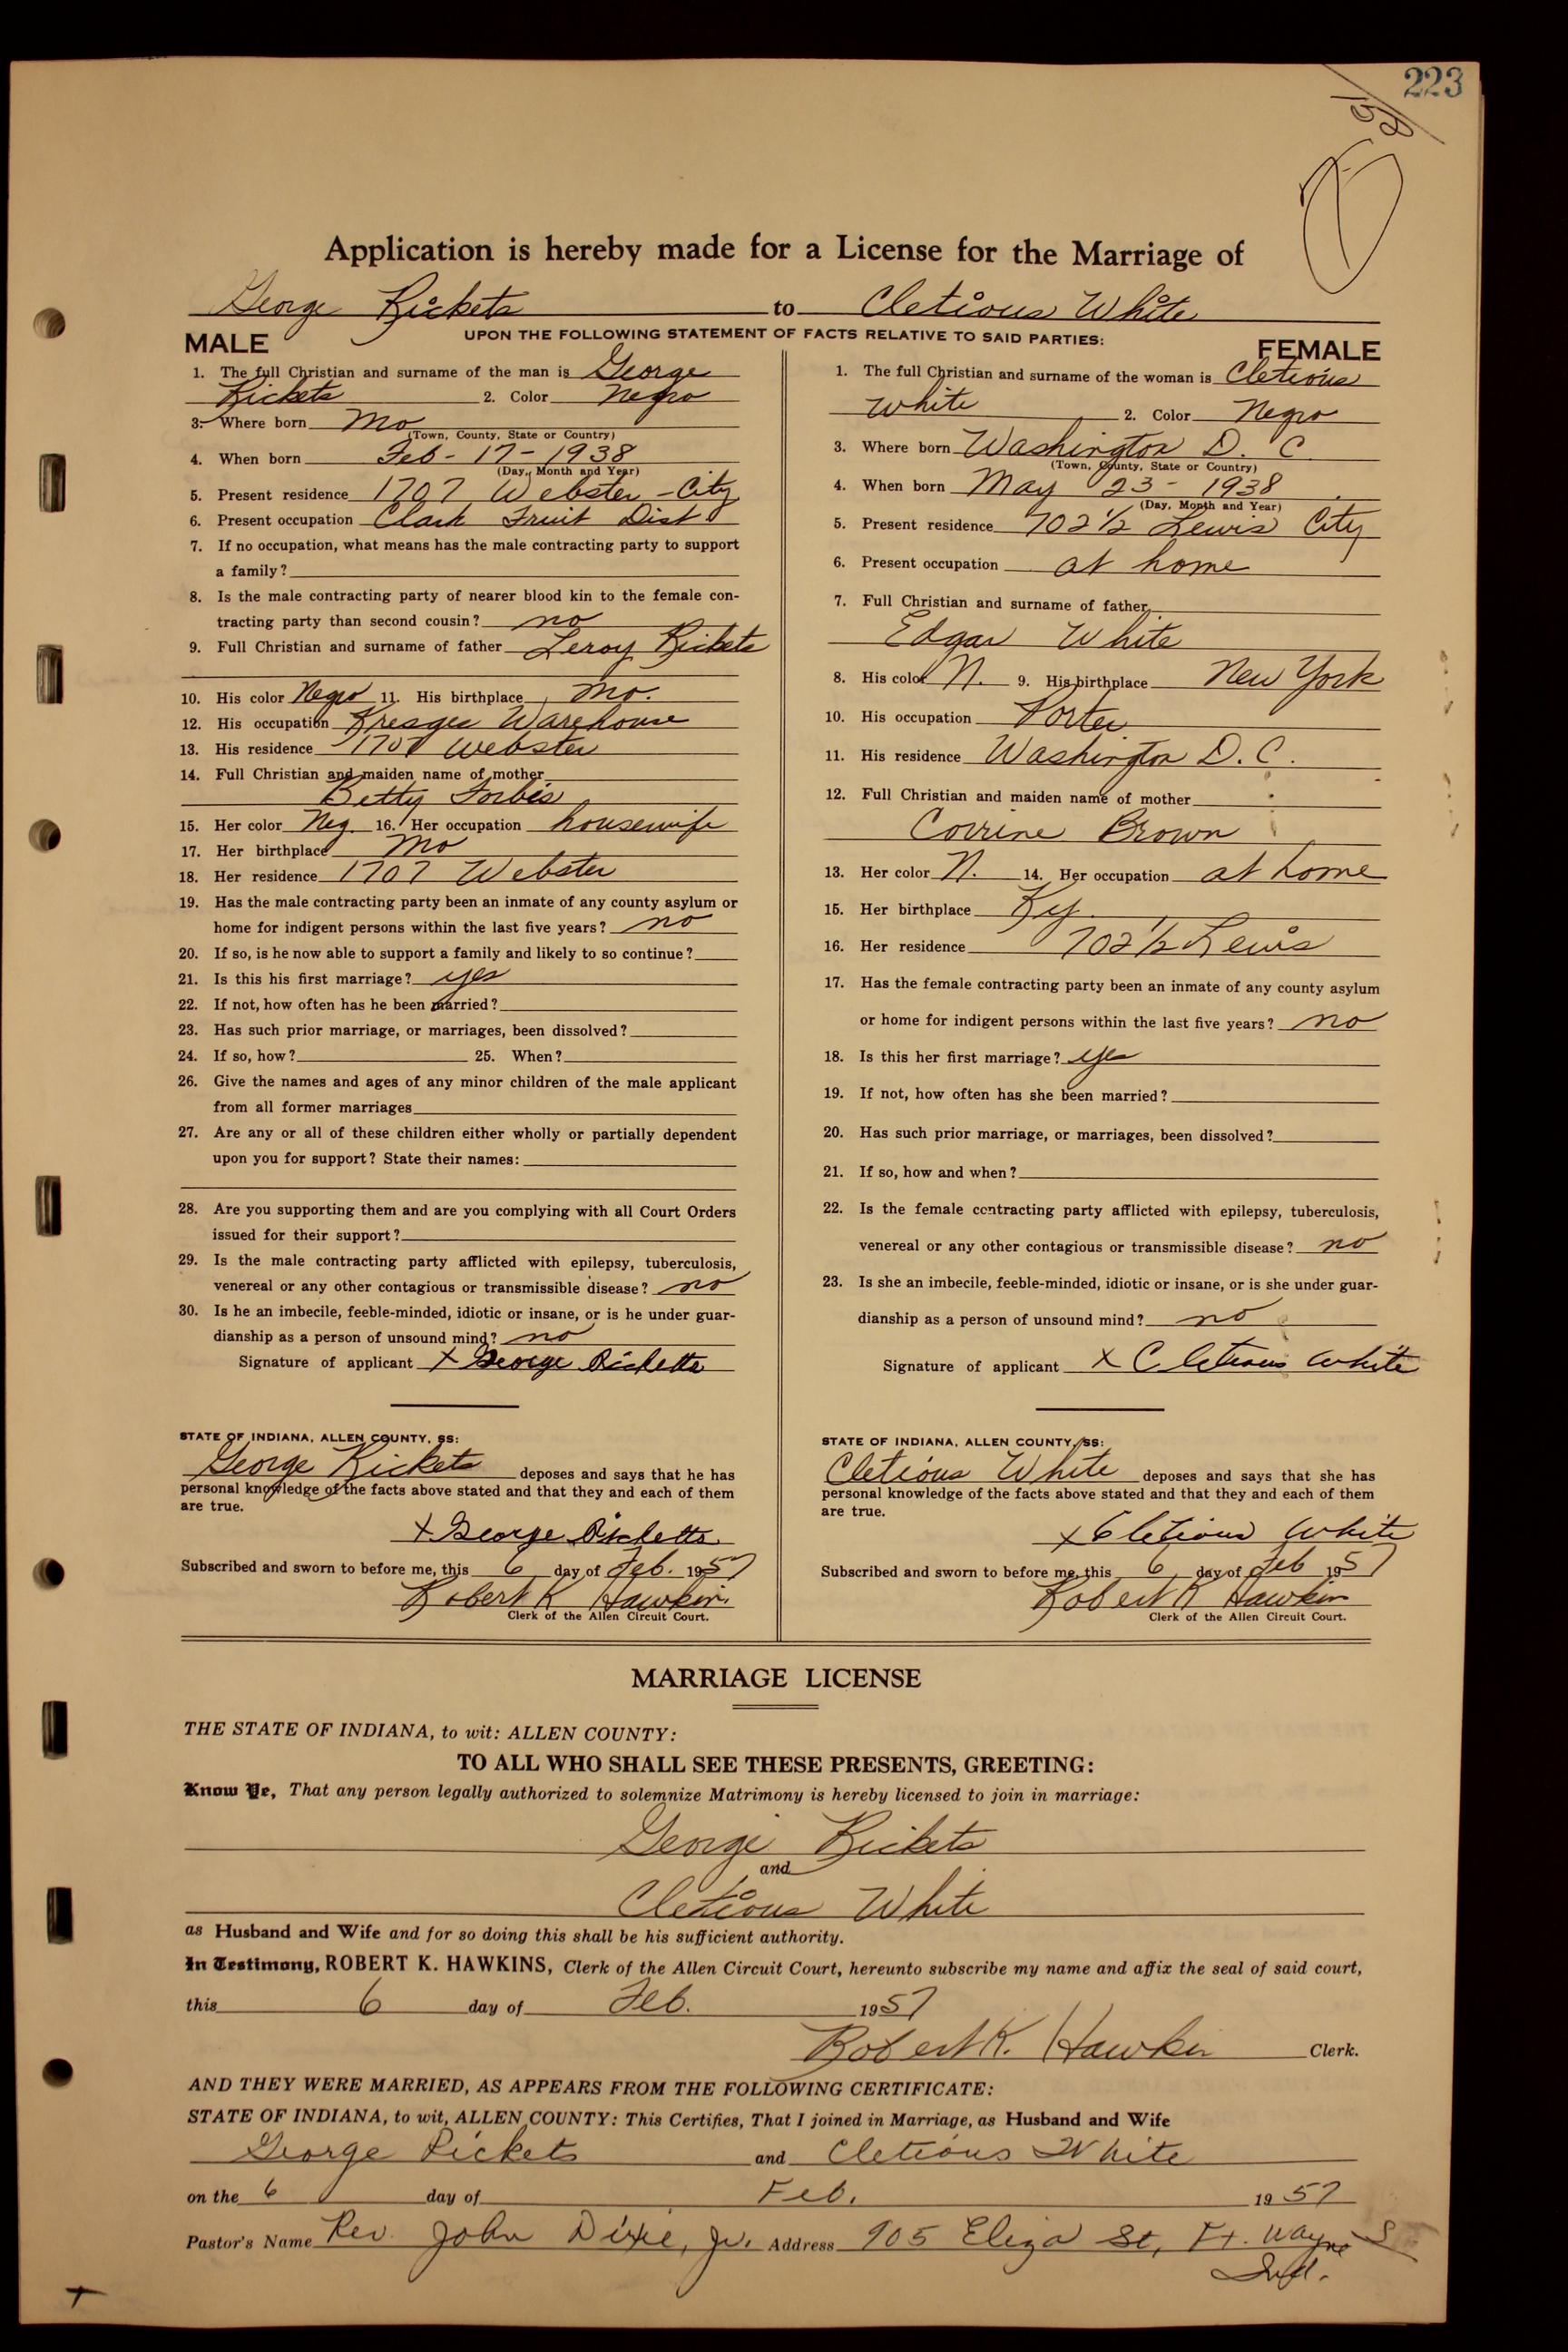 223
Application is hereby made for a License for the Marriage of
George Rickets to Cletious White
UPON THE FOLLOWING STATEMENT OF FACTS RELATIVE TO SAID PARTIES:
MALE
1. The full Christian and surname of the man is George
Rickets 2. Color Negro
3. Where born Mo
(Town, County, State or Country)
4. When born Feb - 17 - 1938
(Day, Month and Year)
5. Present residence 1707 Webster - City
6. Present occupation Clark Fruit Dist
7. If no occupation, what means has the male contracting party to support
a family?
8. Is the male contracting party of nearer blood kin to the female con-
tracting party than second cousin? no
9. Full Christian and surname of father Leroy Rickets
10. His color Negro 11. His birthplace Mo.
12. His occupation Kresges Warehouse
13. His residence 1707 Webster
14. Full Christian and maiden name of mother
Betty Forbis
15. Her color Neg. 16. Her occupation housewife
17. Her birthplace Mo
18. Her residence 1707 Webster
19. Has the male contracting party been an inmate of any county asylum or
home for indigent persons within the last five years? no
20. If so, is he now able to support a family and likely to so continue?
21. Is this his first marriage? yes
22. If not, how often has he been married?
23. Has such prior marriage, or marriages, been dissolved?
24. If so, how? 25. When?
26. Give the names and ages of any minor children of the male applicant
from all former marriages
27. Are any or all of these children either wholly or partially dependent
upon you for support? State their names:
28. Are you supporting them and are you complying with all Court Orders
issued for their support?
29. Is the male contracting party afflicted with epilepsy, tuberculosis,
venereal or any other contagious or transmissible disease? no
30. Is he an imbecile, feeble-minded, idiotic or insane, or is he under guar-
dianship as a person of unsound mind? no
Signature of applicant X George Ricketts
STATE OF INDIANA, ALLEN COUNTY, SS:
George Rickets deposes and says that he has
personal knowledge of the facts above stated and that they and each of them
are true.
X George Ricketts
Subscribed and sworn to before me, this 6 day of Feb. 1957
Robert K Hawkins
Clerk of the Allen Circuit Court.
FEMALE
1. The full Christian and surname of the woman is Cletious
White 2. Color Negro
3. Where born Washington D. C
(Town, County, State or Country)
4. When born May 23 - 1938
(Day, Month and Year)
5. Present residence 702 1/2 Lewis City
6. Present occupation at home
7. Full Christian and surname of father
Edgar White
8. His color N. 9. His birthplace New York
10. His occupation Porter
11. His residence Washington D. C.
12. Full Christian and maiden name of mother
Corrine Brown
13. Her color N. 14. Her occupation at home
15. Her birthplace Ky.
16. Her residence 702 1/2 Lewis
17. Has the female contracting party been an inmate of any county asylum
or home for indigent persons within the last five years? no
18. Is this her first marriage? yes
19. If not, how often has she been married?
20. Has such prior marriage, or marriages, been dissolved?
21. If so, how and when?
22. Is the female contracting party afflicted with epilepsy, tuberculosis,
venereal or any other contagious or transmissible disease? no
23. Is she an imbecile, feeble-minded, idiotic or insane, or is she under guar-
dianship as a person of unsound mind? no
Signature of applicant X Cletious White
STATE OF INDIANA, ALLEN COUNTY, SS:
Cletious White deposes and says that she has
personal knowledge of the facts above stated and that they and each of them
are true.
X Cletious White
Subscribed and sworn to before me, this 6 day of Feb 1957
Robert K Hawkins
Clerk of the Allen Circuit Court.
MARRIAGE LICENSE
THE STATE OF INDIANA, to wit: ALLEN COUNTY:
TO ALL WHO SHALL SEE THESE PRESENTS, GREETING:
Know Ye, That any person legally authorized to solemnize Matrimony is hereby licensed to join in marriage:
George Rickets
and
Cletious White
as Husband and Wife and for so doing this shall be his sufficient authority.
In Testimony, ROBERT K. HAWKINS, Clerk of the Allen Circuit Court, hereunto subscribe my name and affix the seal of said court,
this 6 day of Feb. 1957
Robert K. Hawkins Clerk.
AND THEY WERE MARRIED, AS APPEARS FROM THE FOLLOWING CERTIFICATE:
STATE OF INDIANA, to wit, ALLEN COUNTY: This Certifies, That I joined in Marriage, as Husband and Wife
George Rickets and Cletious White
on the 6 day of Feb. 1957
Pastor's Name Rev. John Dixie, Jr. Address 905 Eliza St, Ft. Wayne
Ind.